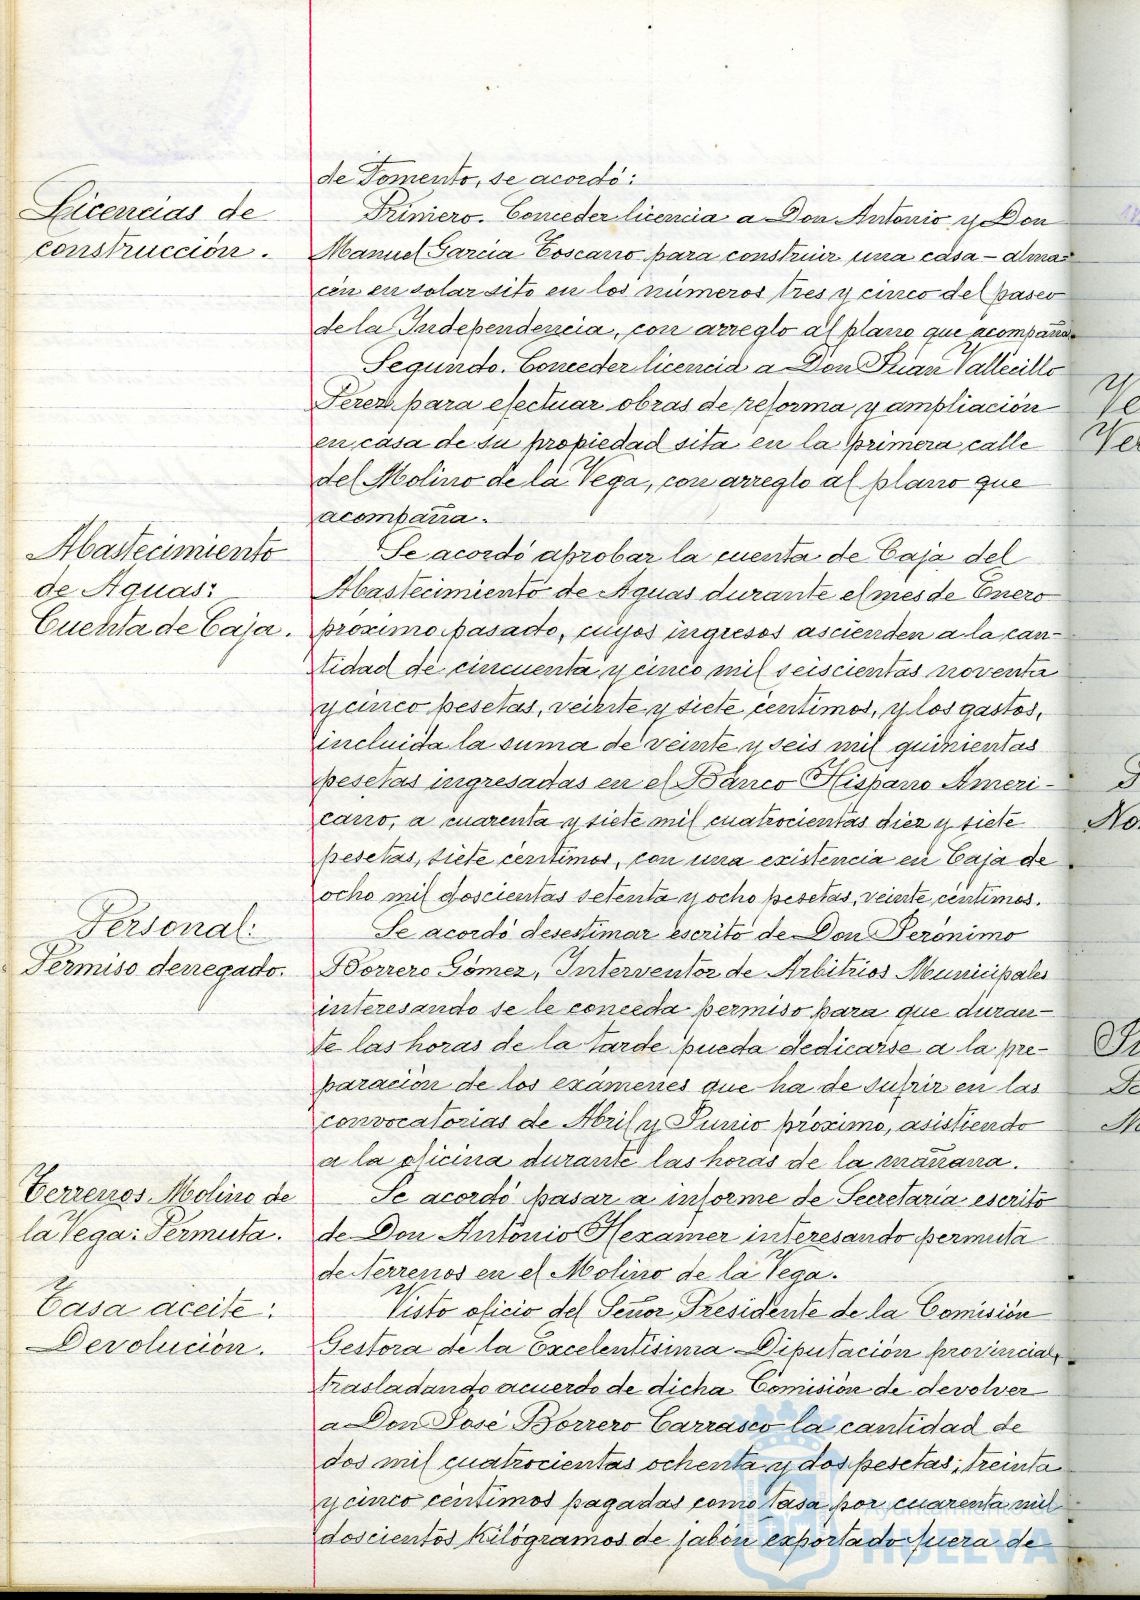 de Fomento, se acordó:
Licencias de
construcción.
Primero. Conceder licencia a Don Antonio y Don
Manuel García Toscano para construir una casa-alma-
cén en solar sito en los números tres y cinco del paseo
de la Independencia, con arreglo al plano que acompaña.
Segundo. Conceder licencia a Don Juan Vallecillo
Perez para efectuar obras de reforma y ampliación
en casa de su propiedad sita en la primera calle
del Molino de la Vega, con arreglo al plano que
acompaña.
Abastecimiento
de Aguas:
Cuenta de Caja.
Se acordó aprobar la cuenta de Caja del
Abastecimiento de Aguas durante el mes de Enero
próximo pasado, cuyos ingresos ascienden a la can-
tidad de cincuenta y cinco mil seiscientas noventa
y cinco pesetas, veinte y siete céntimos, y los gastos,
incluida la suma de veinte y seis mil quinientas
pesetas ingresadas en el Banco Hispano Ameri-
cano, a cuarenta y siete mil cuatrocientas diez y siete
pesetas, siete céntimos, con una existencia en Caja de
ocho mil doscientas setenta y ocho pesetas, veinte céntimos.
Personal:
Permiso denegado.
Se acordó desestimar escrito de Don Jerónimo
Borrero Gómez, Interventor de Arbitrios Municipales
interesando se le conceda permiso para que duran-
te las horas de la tarde pueda dedicarse a la pre-
paración de los exámenes que ha de sufrir en las
convocatorias de Abril y Junio próximo, asistiendo
a la oficina durante las horas de la mañana.
Terrenos Molino de
la Vega: Permuta.
Se acordó pasar a informe de Secretaría escrito
de Don Antonio Hexamer interesando permuta
de terrenos en el Molino de la Vega.
Tasa aceite:
Devolución.
Visto oficio del Señor Presidente de la Comisión
Gestora de la Excelentísima Diputación provincial,
trasladando acuerdo de dicha Comisión de devolver
a Don José Borrero Carrasco la cantidad de
dos mil cuatrocientas ochenta y dos pesetas, treinta
y cinco céntimos pagadas como tasa por cuarenta mil
doscientos kilógramos de jabón exportado fuera de
Ayuntamiento de
HUELVA